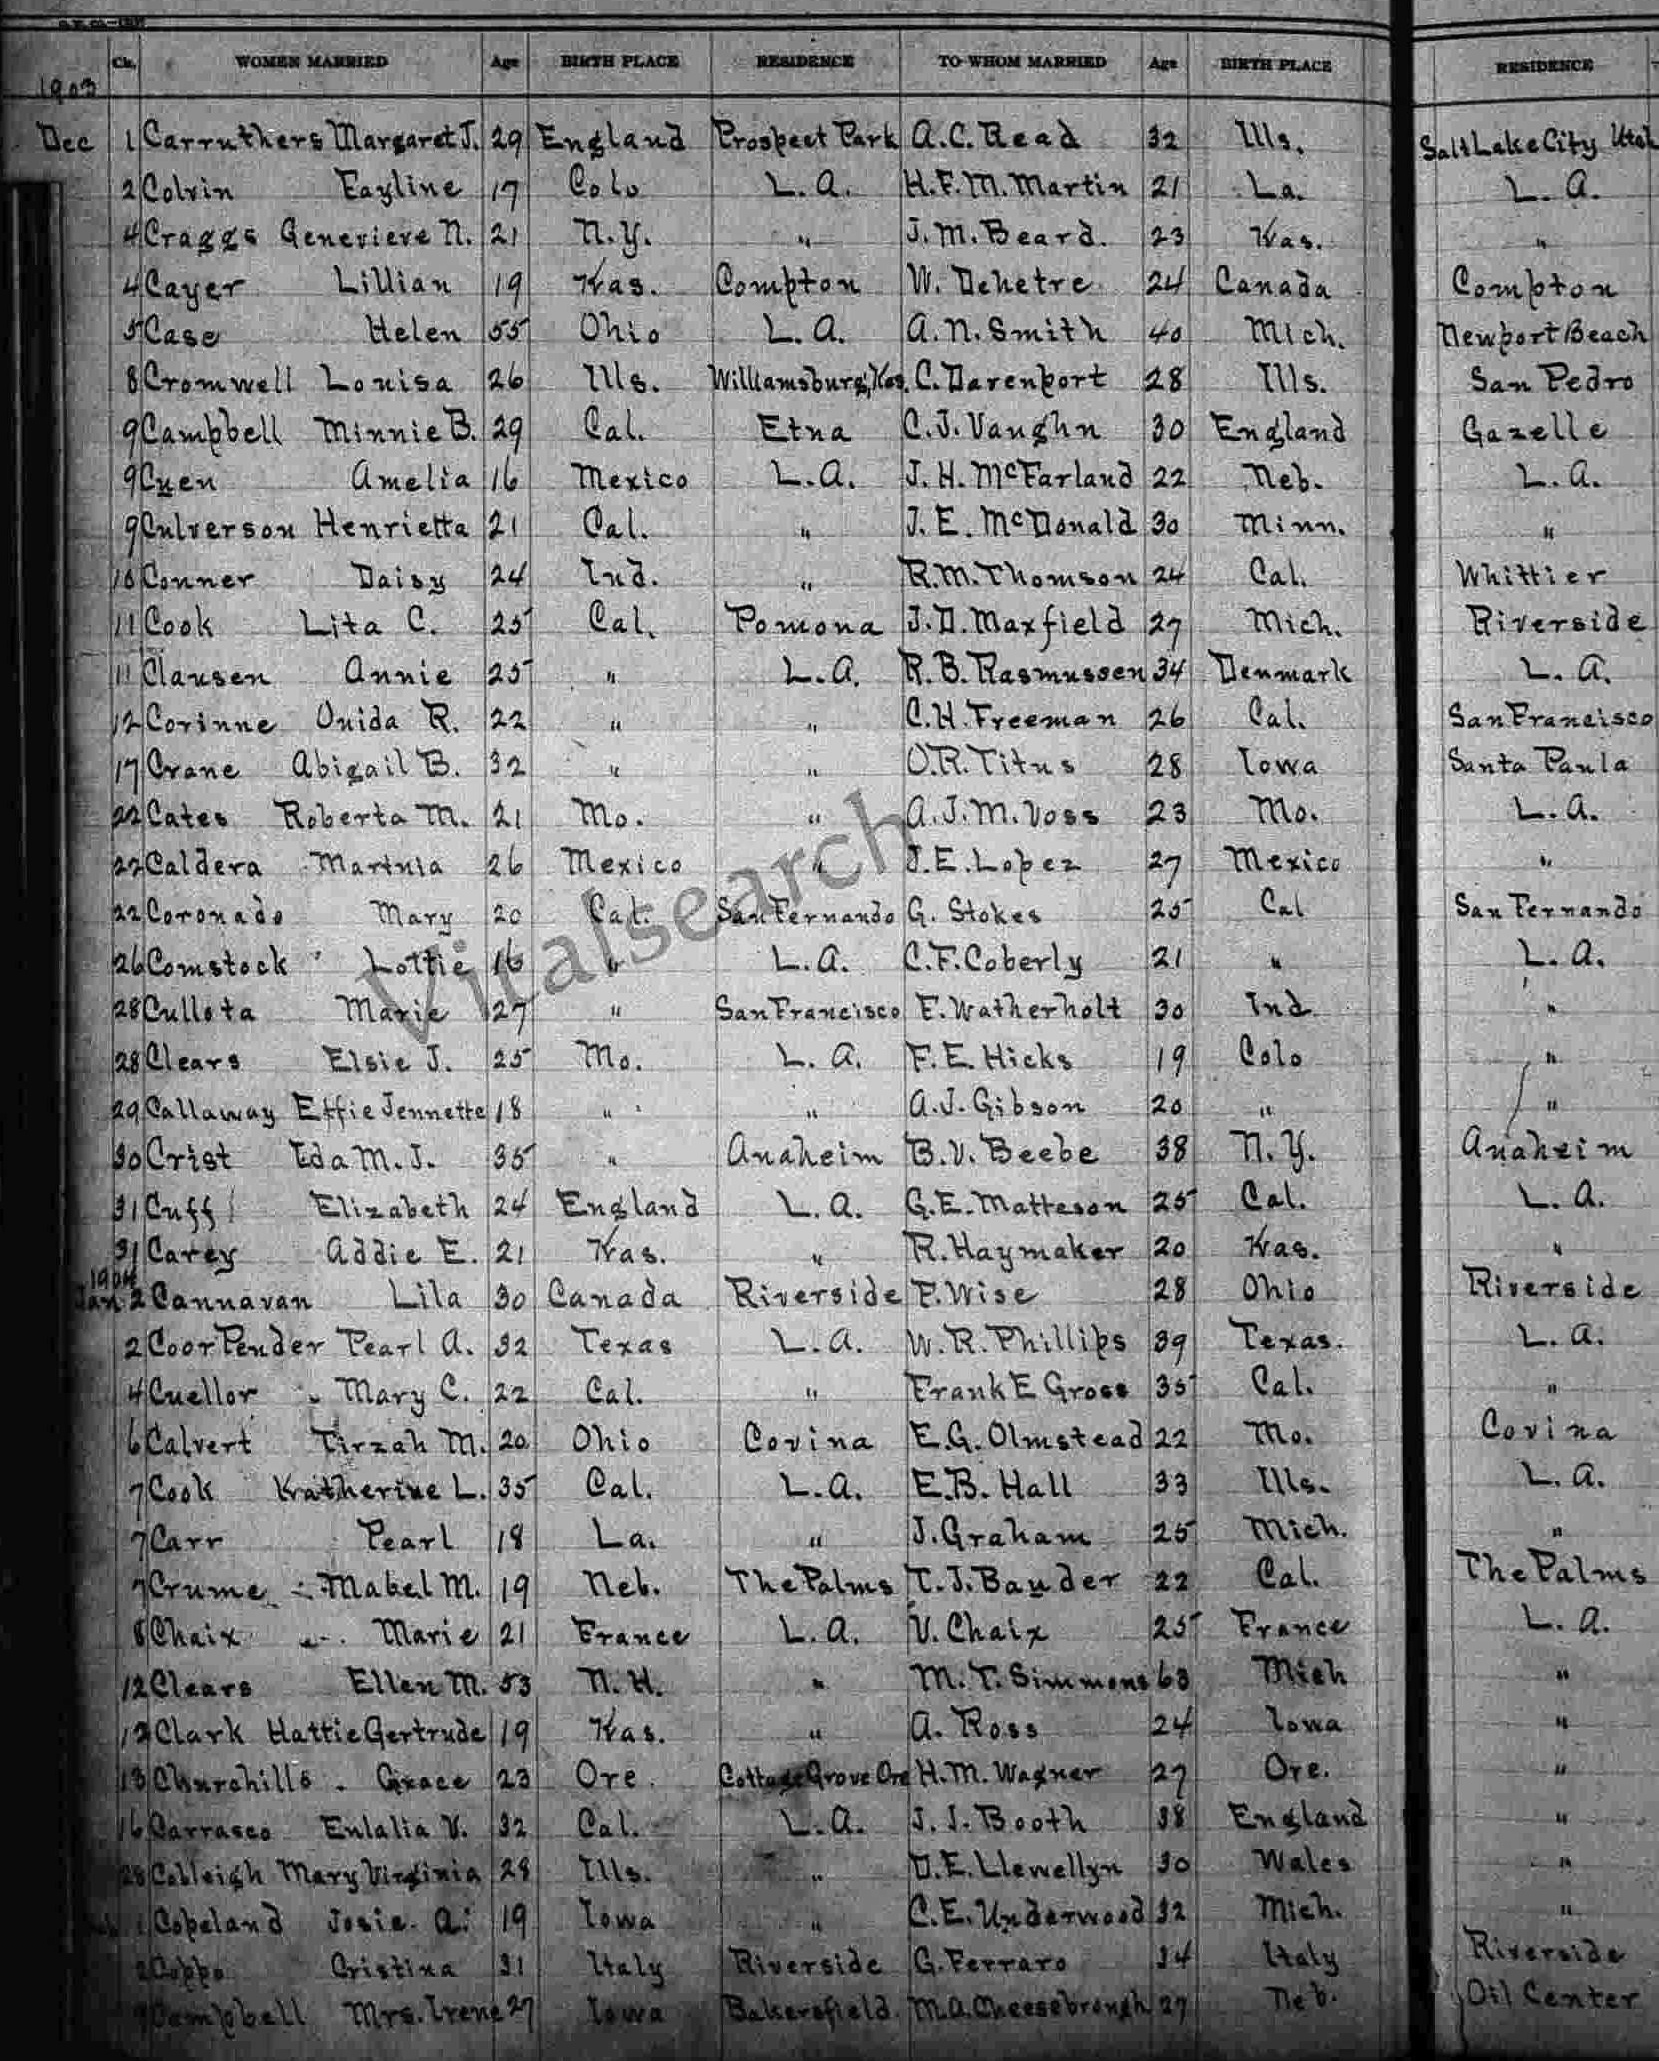 Ck. WOMEN MARRIED Age BIRTH PLACE RESIDENCE TO WHOM MARRIED Age BIRTH PLACE RESIDENCE
1903
Dec 1 Carruthers Margaret J. 29 England Prospect Park A.C. Read 32 Ills. Salt Lake City Utah
2 Colvin Fayline 17 Colo L.A. H.F.M. Martin 21 La. L.A.
4 Craggs Genevieve N. 21 N.Y. " J.M. Beard. 23 Kas. "
4 Cayer Lillian 19 Kas. Compton W. Dehetre 24 Canada Compton
5 Case Helen 55 Ohio L.A. A.N. Smith 40 Mich. Newport Beach
8 Cromwell Louisa 26 Ills. Williamsburg, Kas. C. Davenport 28 Ills. San Pedro
9 Campbell Minnie B. 29 Cal. Etna C.J. Vaughn 30 England Gazelle
9 Cuen Amelia 16 Mexico L.A. J.H. McFarland 22 Neb. L.A.
9 Culverson Henrietta 21 Cal. " J.E. McDonald 30 Minn. "
10 Conner Daisy 24 Ind. " R.M. Thomson 24 Cal. Whittier
11 Cook Lita C. 25 Cal. Pomona J.D. Maxfield 27 Mich. Riverside
11 Clausen Annie 25 " L.A. R.B. Rasmussen 34 Denmark L.A.
12 Corinne Ouida R. 22 " " C.H. Freeman 26 Cal. San Francisco
17 Crane Abigail B. 32 " " O.R. Titus 28 Iowa Santa Paula
22 Cates Roberta M. 21 Mo. " A.J.M. Voss 23 Mo. L.A.
22 Caldera 26 Mexico " J.E. Lopez 27 Mexico "
22 Coronado Mary 20 Cal. San Fernando G. Stokes 25 Cal San Fernando
26 Comstock Lottie 16 " L.A. C.F. Coberly 21 " L.A.
28 Cullota Marie 27 " San Francisco E. Watherholt 30 Ind "
28 Clears Elsie J. 25 Mo. L.A. F.E. Hicks 19 Colo "
29 Callaway Effie Jennette 18 " " A.J. Gibson 20 " "
30 Crist Ida M.J. 35 " Anaheim B.V. Beebe 38 N.Y. Anaheim
31 Cuff Elizabeth 24 England L.A. G.E. Matteson 25 Cal. L.A.
31 Carey Addie E. 21 Kas. " R. Haymaker 20 Kas. "
1904
Jan. 2 Cannavan Lila 30 Canada Riverside P. Wise 28 Ohio Riverside
2 Coor Pender Pearl A. 32 Texas L.A. W.R. Phillips 39 Texas. L.A.
4 Cuellor Mary C. 22 Cal. " Frank E Gross 35 Cal. "
6 Calvert Tirzah M. 20 Ohio Covina E.G. Olmstead 22 Mo. Covina
7 Cook Katherine L. 35 Cal. L.A. E.B. Hall 33 Ills. L.A.
7 Carr Pearl 18 La. " J. Graham 25 Mich. "
7 Crume Mabel M. 19 Neb. The Palms T.J. Bauder 22 Cal. The Palms
8 Chaix Marie 21 France L.A. V. Chaix 25 France L.A.
12 Clears Ellen M. 53 N.H. " M.T. Simmons 63 Mich "
12 Clark Hattie Gertrude 19 Kas. " A. Ross 24 Iowa "
13 Churchills Grace 23 Ore. Cottage Grove Ore H.M. Wagner 27 Ore. "
16 Carrasco Eulalia V. 32 Cal. L.A. J.J. Booth 38 England "
28 Cobleigh Mary Virginia 28 Ills. " D.E. Llewellyn 30 Wales "
1 Copeland Josie A. 19 Iowa " C.E. Underwood 32 Mich. "
2 Coppo Cristina 31 Italy Riverside G. Ferraro 34 Italy Riverside
Campbell Mrs. Irene 27 Iowa Bakersfield M.A. Cheesebrough 27 Neb. Oil Center
Viralsearch